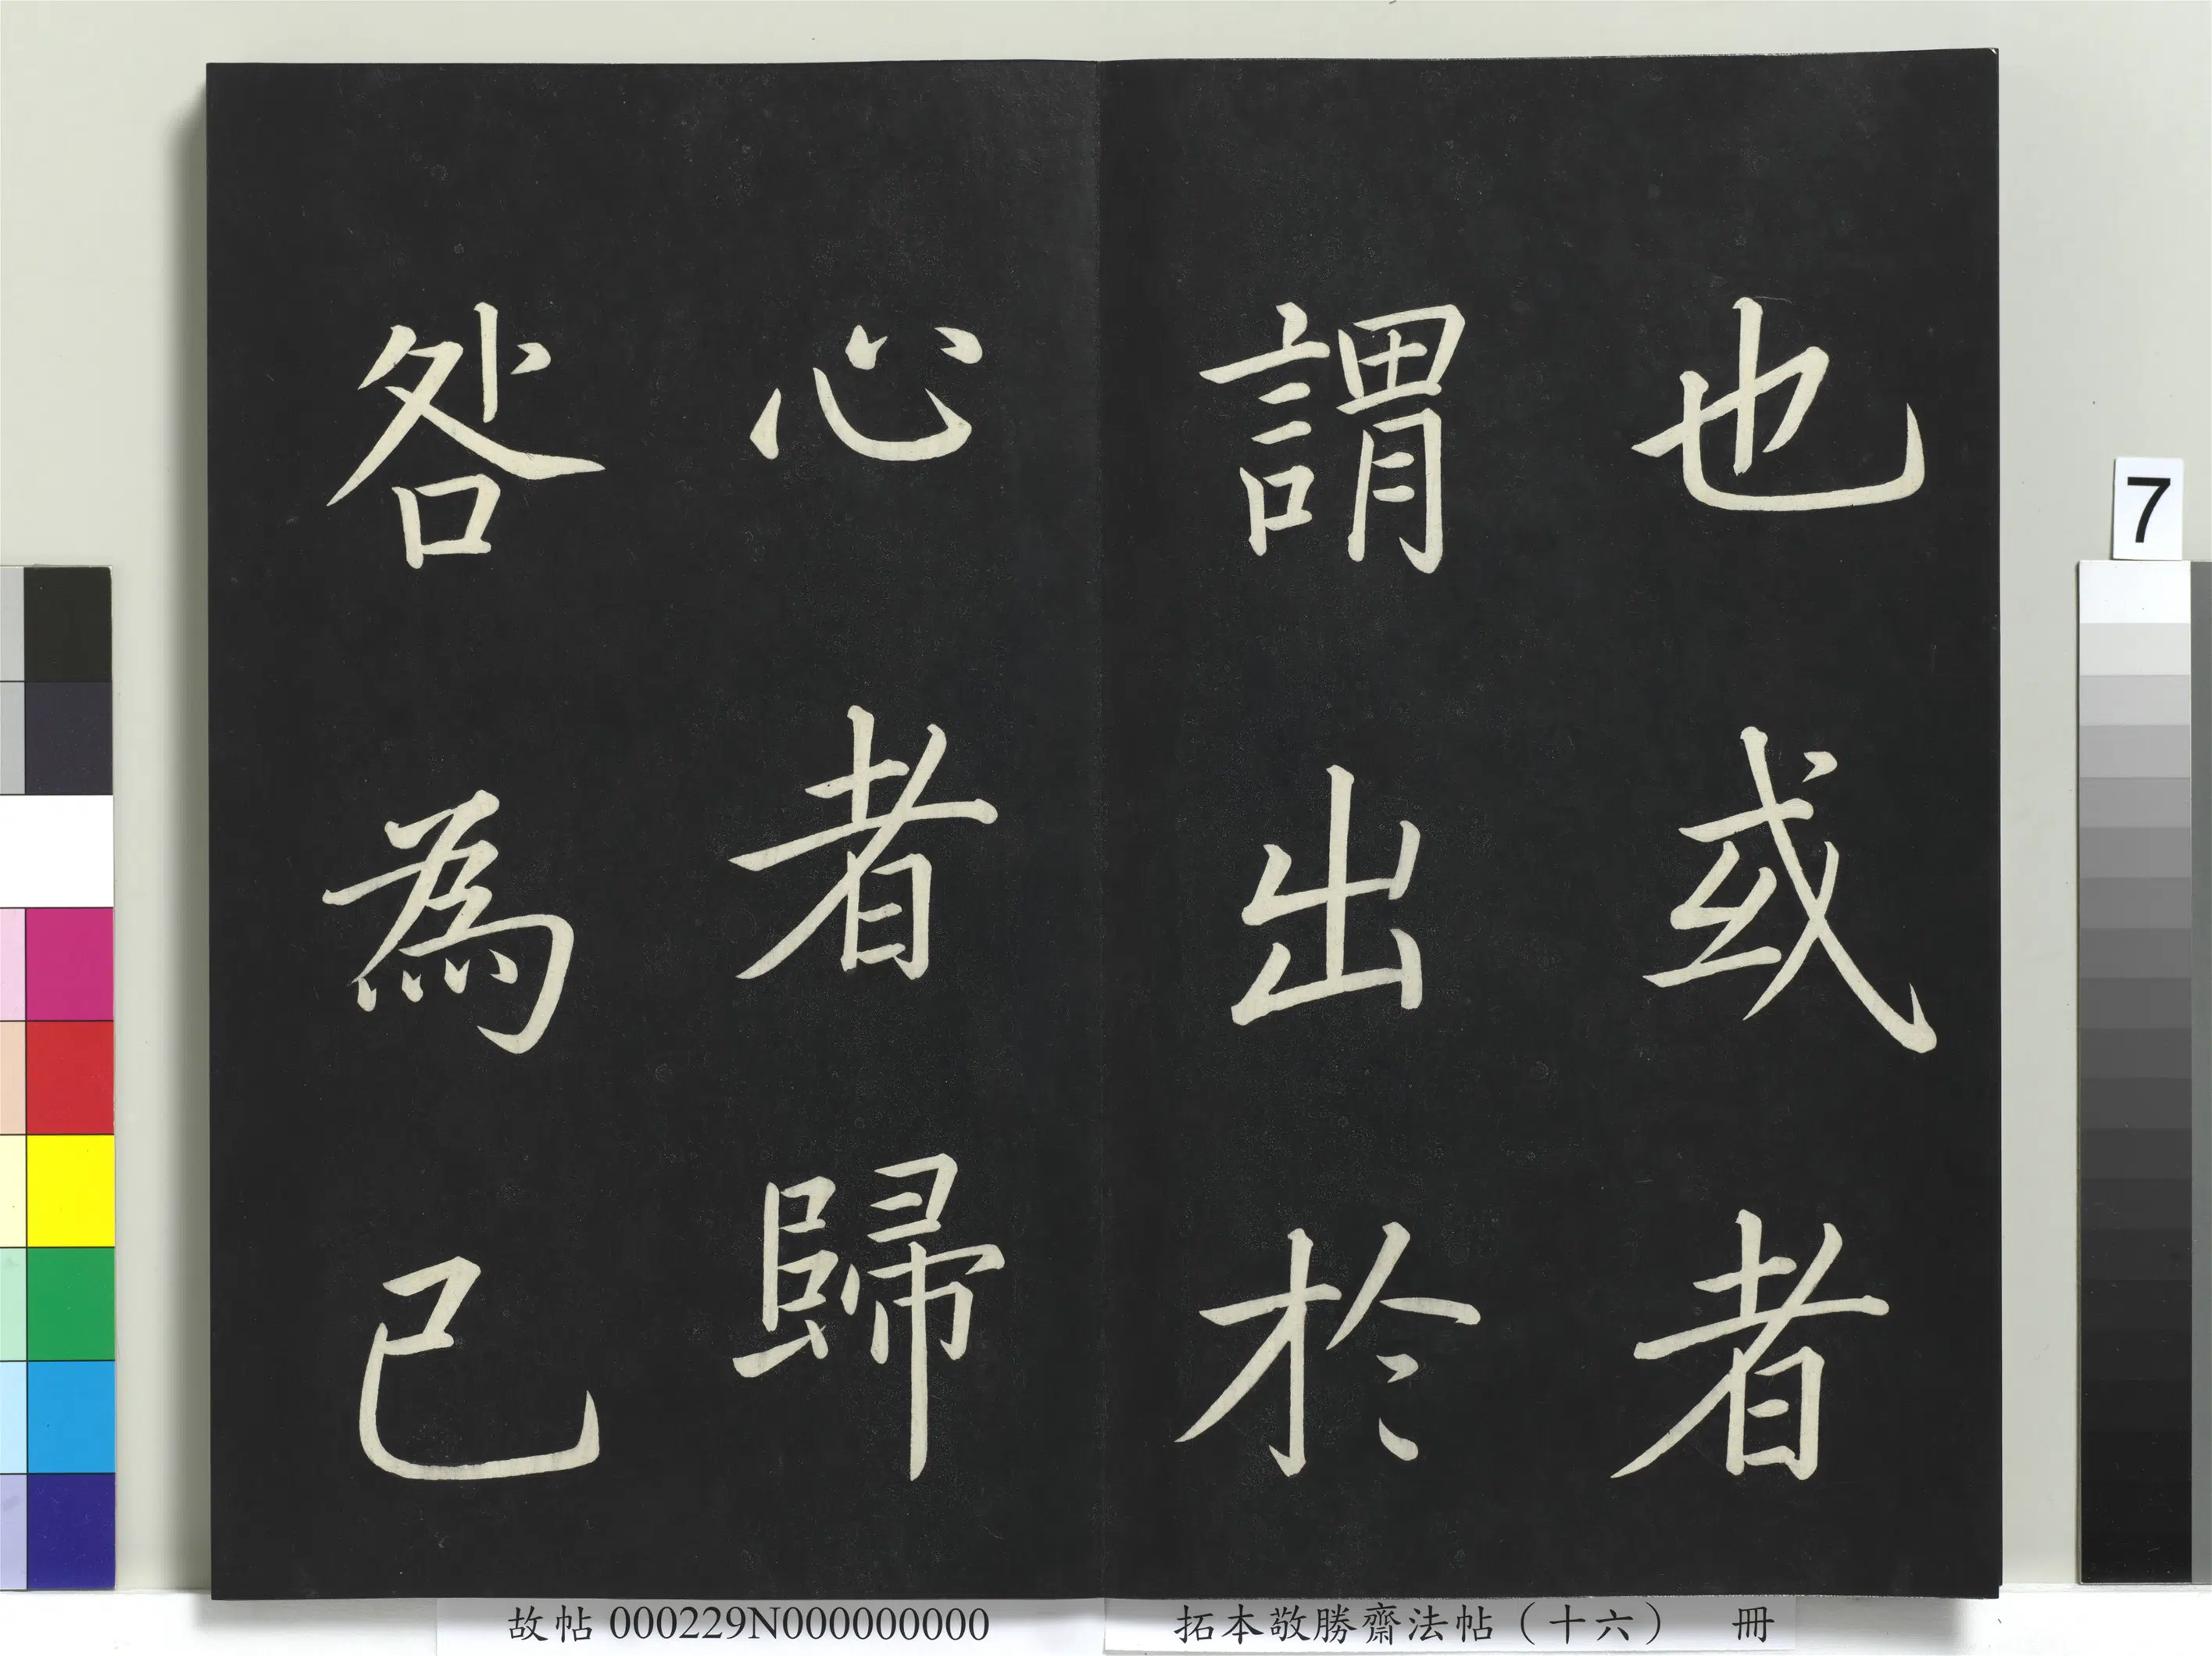 也或者
謂出於
心者歸
咎為己
7
故帖 000229N000000000
拓本敬勝齋法帖（十六） 冊